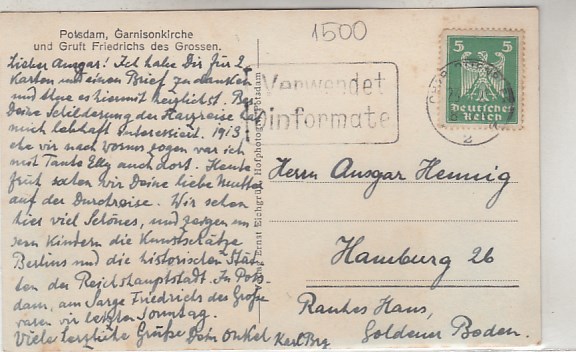 Potsdam, Garnisonkirche
und Gruft Friedrichs des Grossen.
1500
Lieber Ansgar! Ich habe Dir für 2
Karten und einen Brief zu danken
und thue es hiermit herzlichst.
Deine Schilderung der Harzreise hat
mich lebhaft interessiert. 1913
ehe wir nach vorns zogen war ich
mit Tante Elly auch dort. Heute
früh sahen wir Deine liebe Mutter
auf der Durchreise. Wir sehen
hier viel Schönes, und zeigen un
sern Kindern die Kunstschätze
Berlins und die historischen Stät
ten der Reichshauptstadt. In Pots
dam, am Sarge Friedrichs des Große
waren wir letzten Sonntag.
Viele herzliche Grüße Dein Onkel Karl Brg
Ernst Eichgrün, Hofphotogr. Potsdam
Verwendet
Dinformate
5 5
Deutsches
Reich
2
Herrn Ansgar Hennig
Hamburg 26
Rauhes Haus,
Goldener Boden.